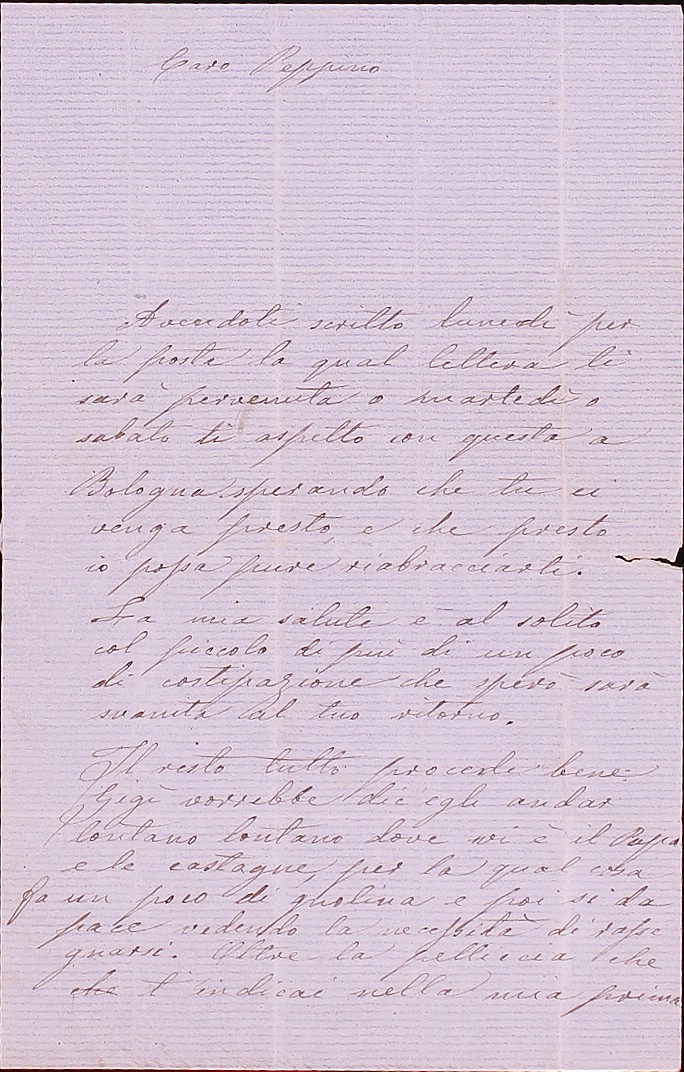 Caro Peppino
Avendoti scritto lunedì per
la posta la qual lettera ti
sarà pervenuta o martedì o
sabato ti aspetto con questa a
Bologna sperando che tu ci
venga presto, e che presto
io possa pure riabracciarti.
La mia salute è al solito
col piccolo di più di un poco
di costipazione che sperò sarà
svanita al tuo ritorno.
Il resto tutto procede bene.
Gigi vorrebbe dic'egli andar
lontano lontano dove vi è il Papa
e le castagne, per la qual cosa
fa un poco di gnolina e poi si da
pace vedendo la necessità di rasse
gnarsi. Oltre la pelliccia che
che t'indicai nella mia prima